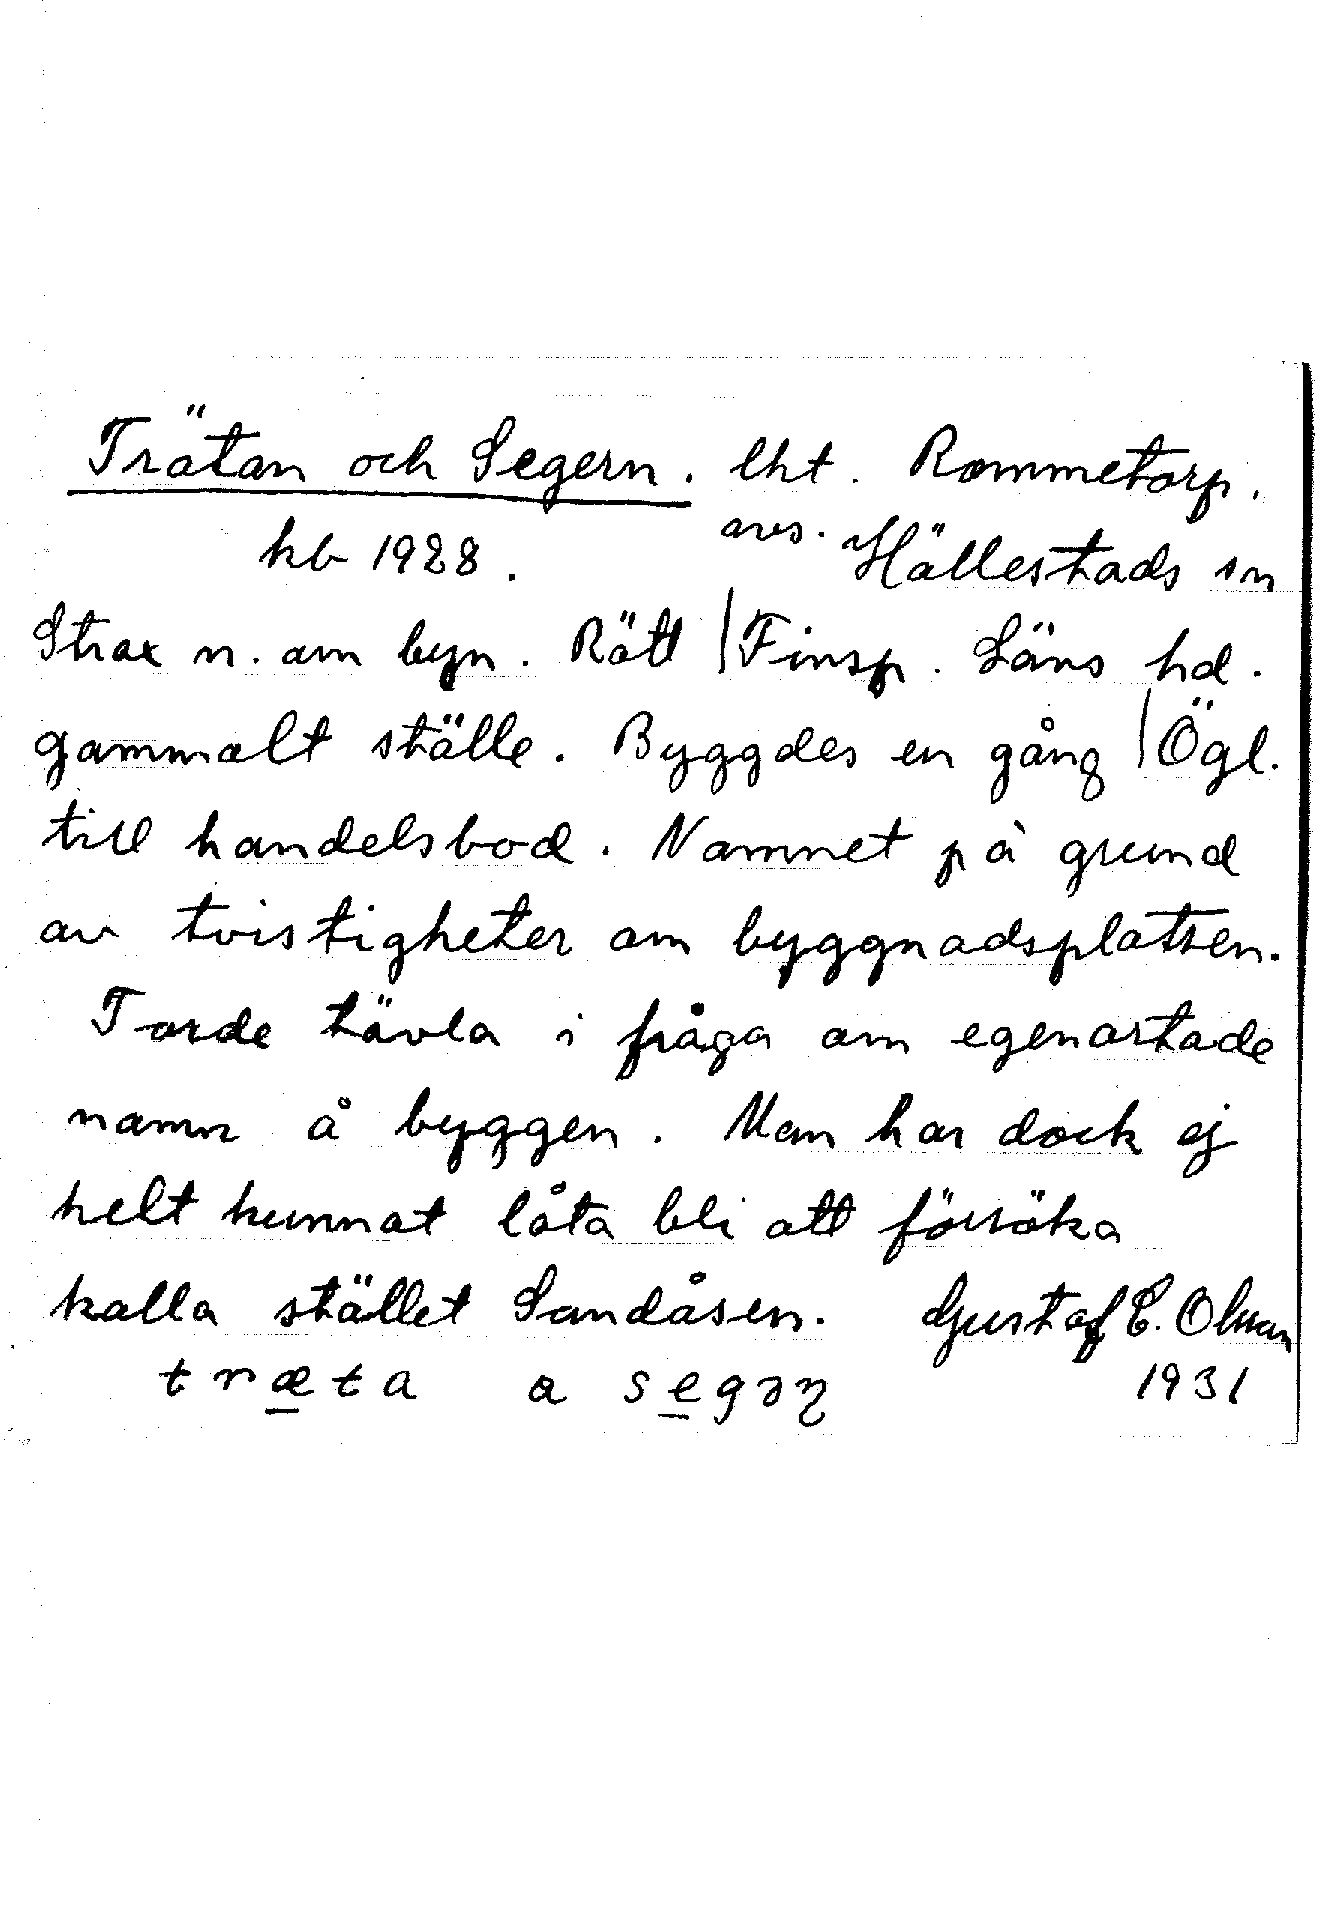 Trätan och Segern. lht. Rommetorp.
hb 1928. avs. Hällestads sn
Strax n. om byn. Rätt | Finsp. Läns hd.
gammalt ställe. Byggdes en gång | Ögl.
till handelsbod. Namnet på grund
av tvistigheter om byggnadsplatsen.
Torde tävla i fråga om egenartade
namn å byggen. Man har dock ej
helt kunnat låta bli att försöka
kalla stället Sandåsen. Gustaf E. Olsson
træta a segəɳ 1931